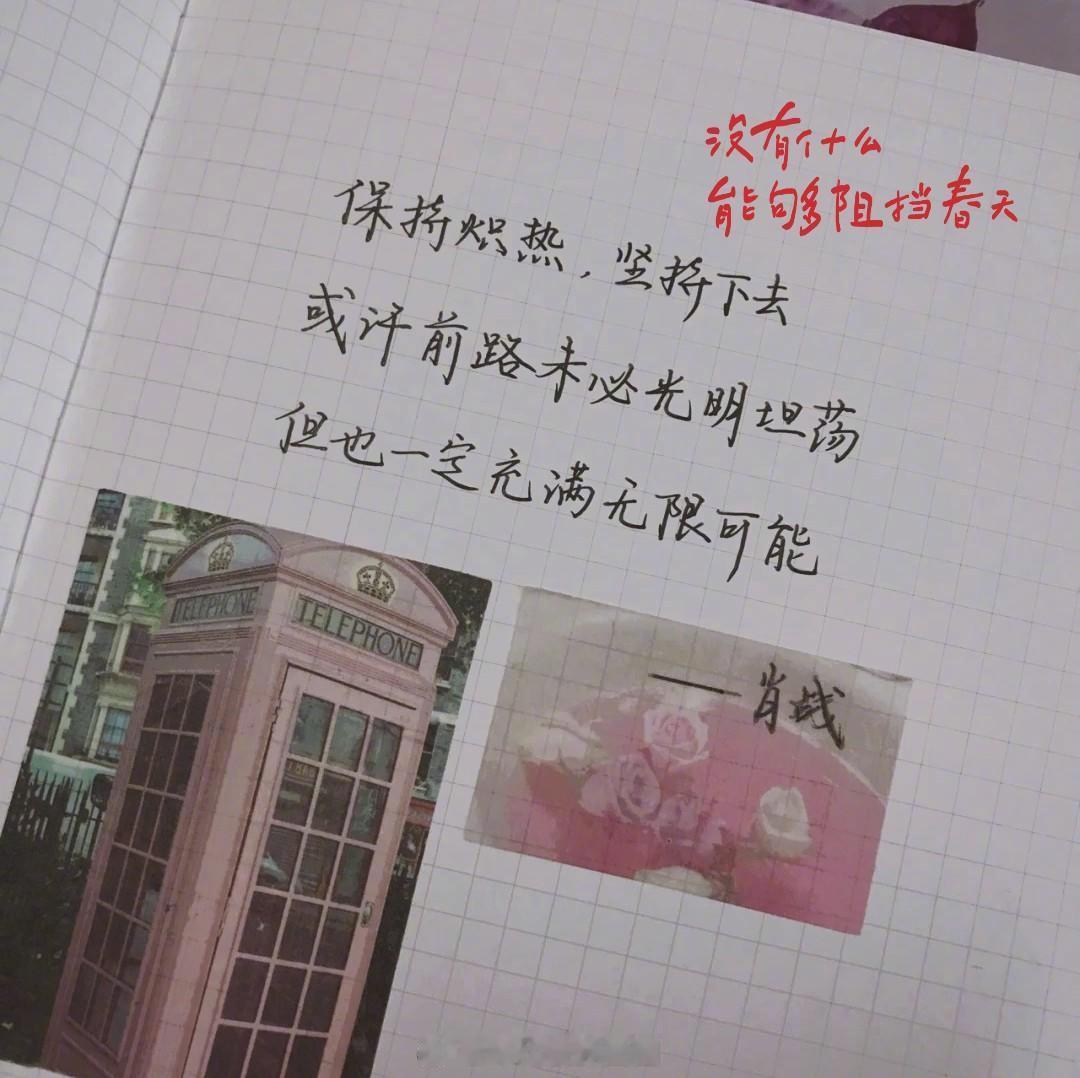 没有什么
能够阻挡春天
保持炽热，坚持下去
或许前路未必光明坦荡
但也一定充满无限可能
——肖战
TELEPHONE
TELEPHONE